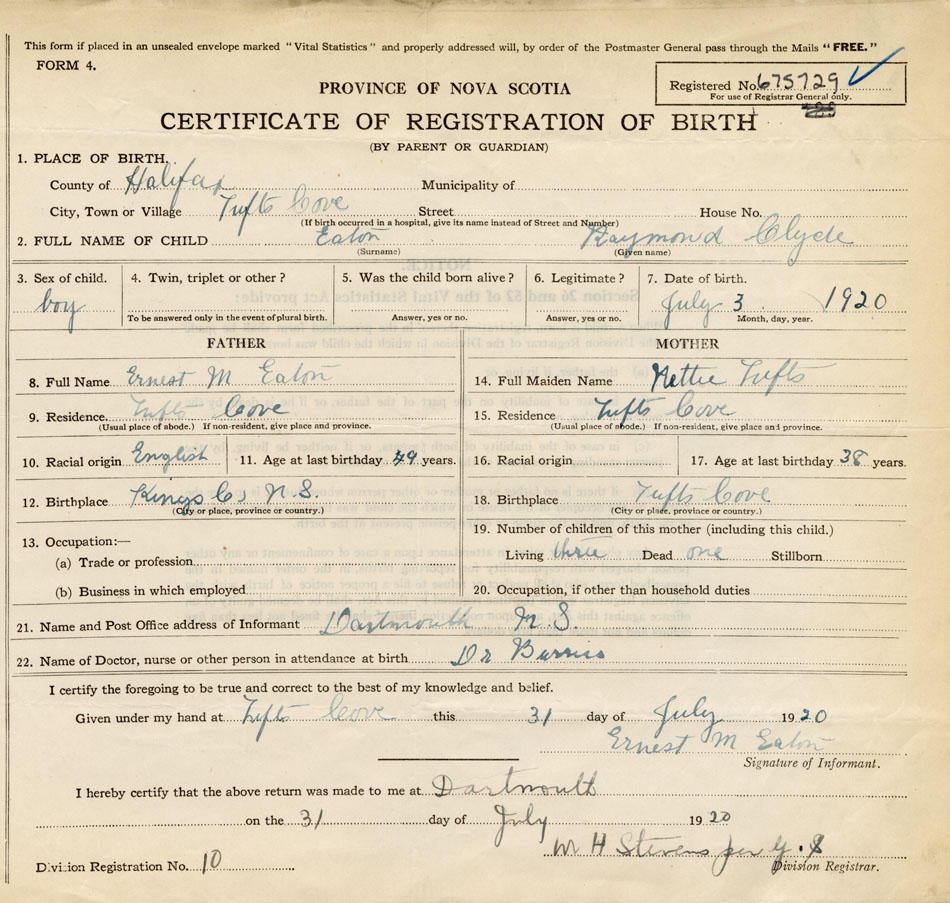 This form if placed in an unsealed envelope marked "Vital Statistics" and properly addressed will, by order of the Postmaster General pass through the Mails "FREE."
FORM 4.
Registered No. 675729
For use of Registrar General only.
PROVINCE OF NOVA SCOTIA
CERTIFICATE OF REGISTRATION OF BIRTH
(BY PARENT OR GUARDIAN)
1. PLACE OF BIRTH.
County of Halifax Municipality of
City, Town or Village Tufts Cove Street House No.
(If birth occurred in a hospital, give its name instead of Street and Number)
2. FULL NAME OF CHILD Eaton Raymond Clyde
(Surname) (Given name)
3. Sex of child. 4. Twin, triplet or other? 5. Was the child born alive? 6. Legitimate? 7. Date of birth.
boy July 3 1920
To be answered only in the event of plural birth. Answer, yes or no. Answer, yes or no. Month, day, year.
FATHER
8. Full Name Ernest M Eaton
9. Residence. Tufts Cove
(Usual place of abode.) If non-resident, give place and province.
10. Racial origin English 11. Age at last birthday 49 years.
12. Birthplace Kings Co, N.S.
(City or place, province or country.)
13. Occupation:—
(a) Trade or profession
(b) Business in which employed
MOTHER
14. Full Maiden Name Nettie Tufts
15. Residence Tufts Cove
(Usual place of abode.) If non-resident, give place and province.
16. Racial origin 17. Age at last birthday 38 years.
18. Birthplace Tufts Cove
(City or place, province or country.)
19. Number of children of this mother (including this child.)
Living three Dead one Stillborn
20. Occupation, if other than household duties
21. Name and Post Office address of Informant Dartmouth N.S.
22. Name of Doctor, nurse or other person in attendance at birth Dr Burris
I certify the foregoing to be true and correct to the best of my knowledge and belief.
Given under my hand at Tufts Cove this 31 day of July 1920
Ernest M Eaton
Signature of Informant.
I hereby certify that the above return was made to me at Dartmouth
on the 31 day of July 1920
M H Stevens per
Division Registration No. 10 Division Registrar.